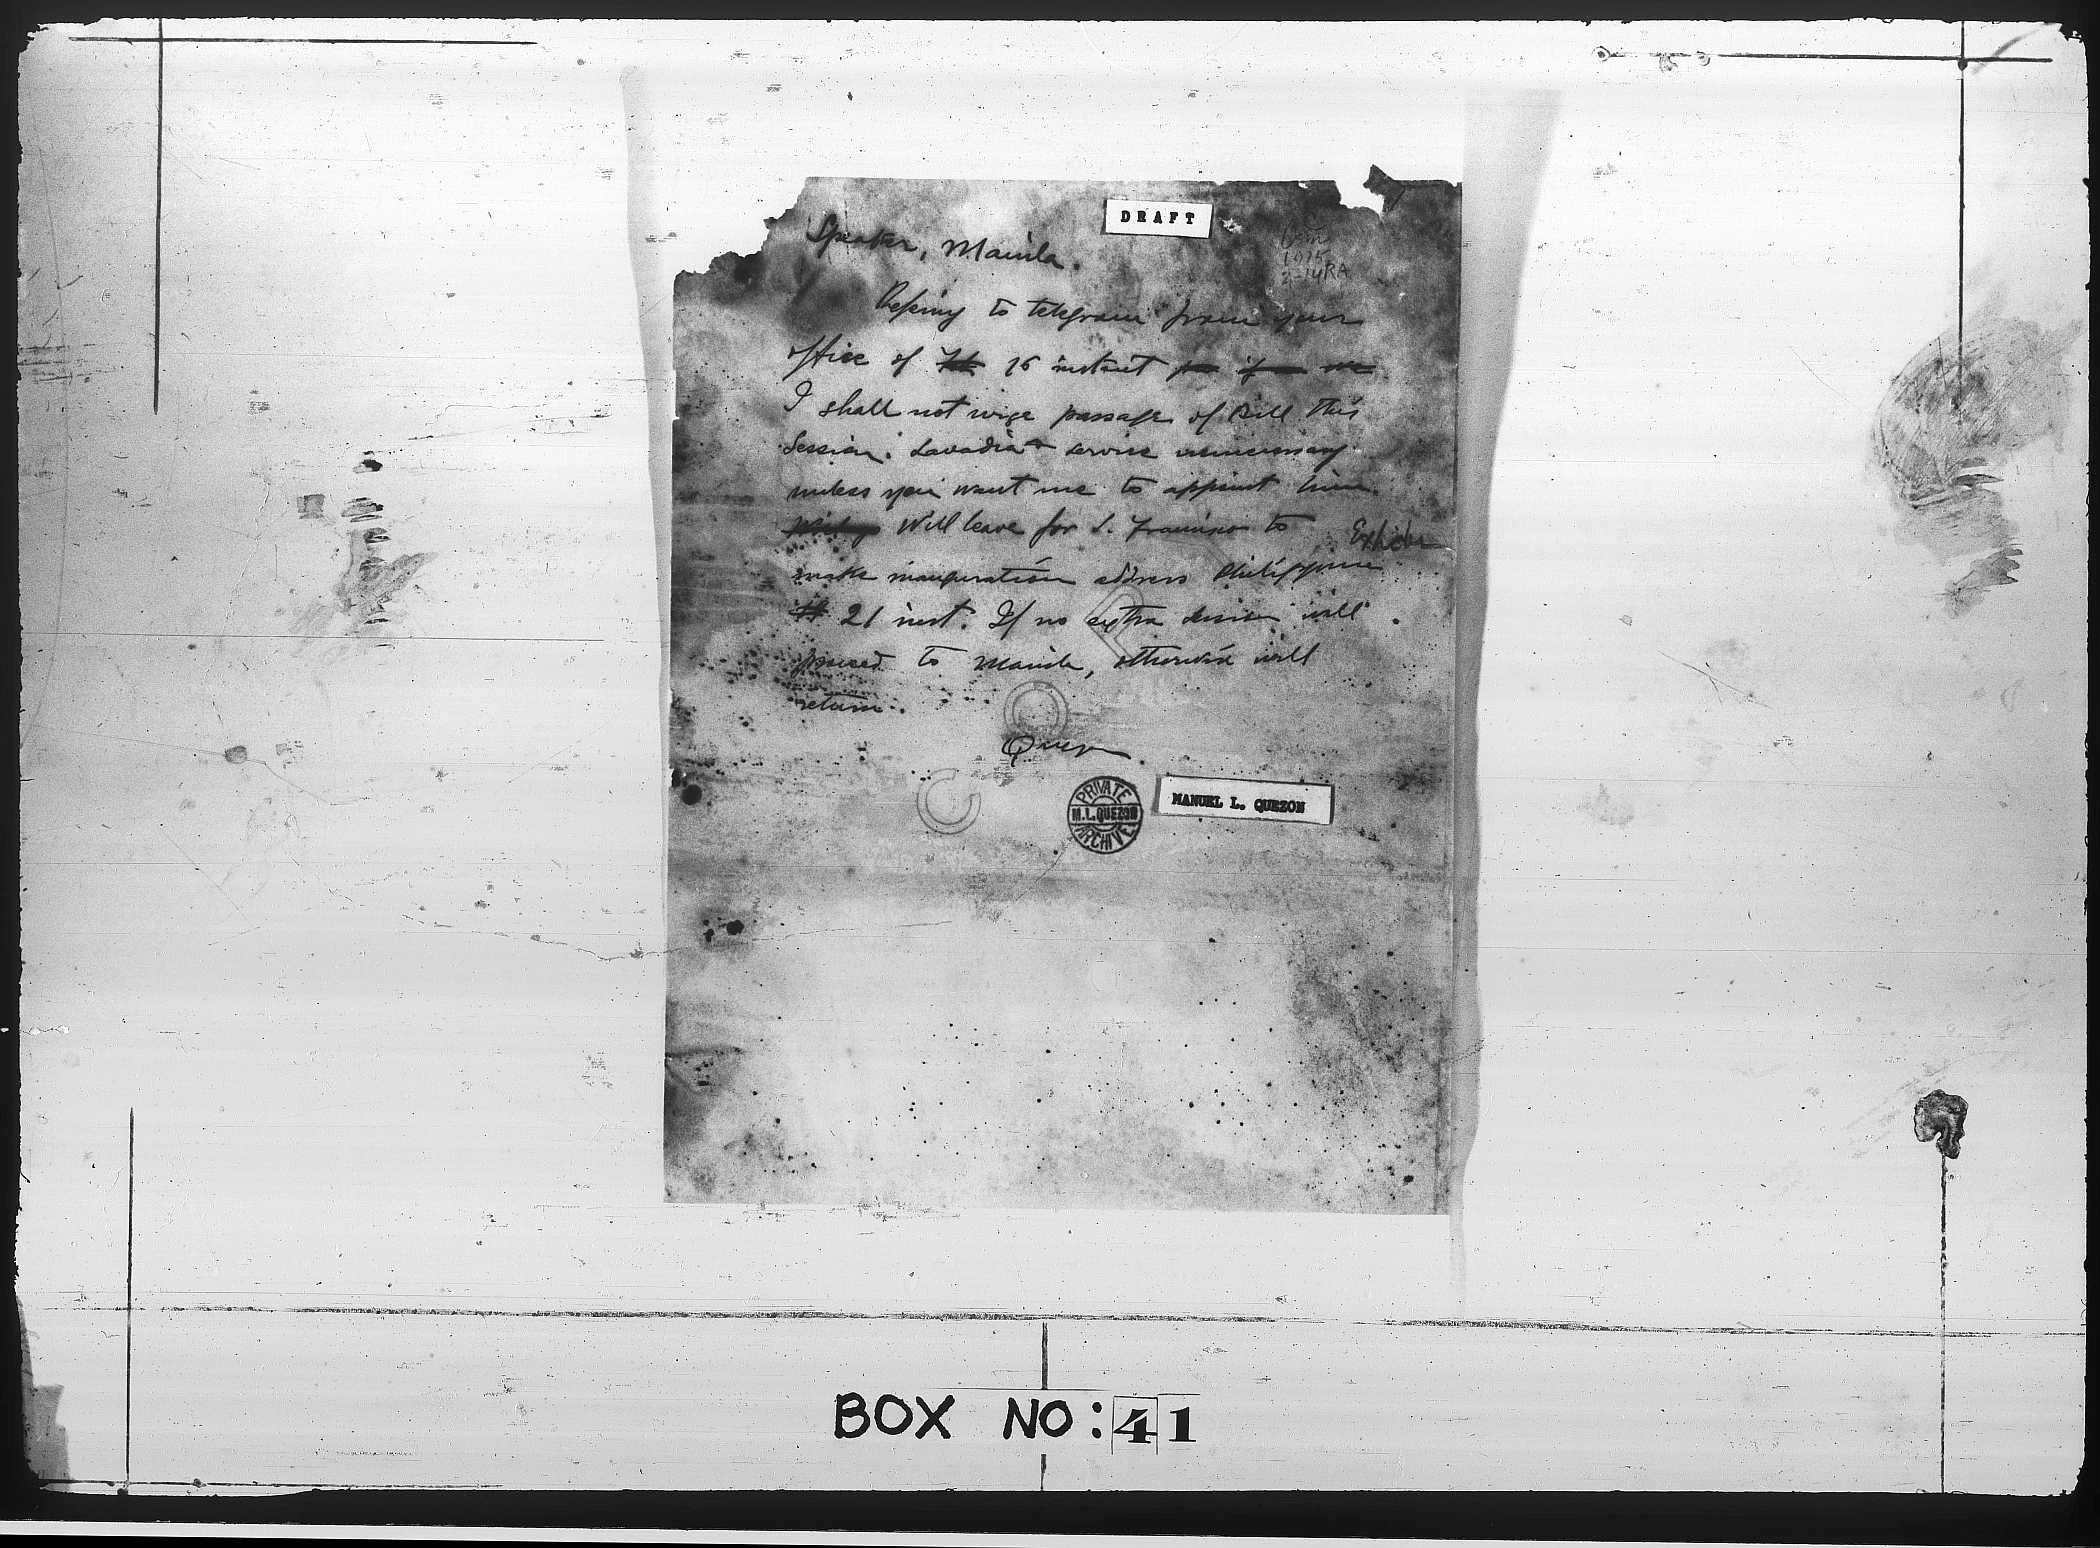 DRAFT
Speaker, Manila.
1915
2-14RA
Refering to telegram from your
office of 16 instant
I shall not urge passage of Bill this
Session. Lavadia service unnecessary
unless you want me to appoint him.
Will leave for S. Francisco to
make inauguration address Philippine
21 inst. If no extra session will
proceed to Manila, otherwise will
return.
Quezon
PRIVATE
M.L.QUEZON
ARCHIVE
MANUEL L. QUEZON
BOX NO: 41